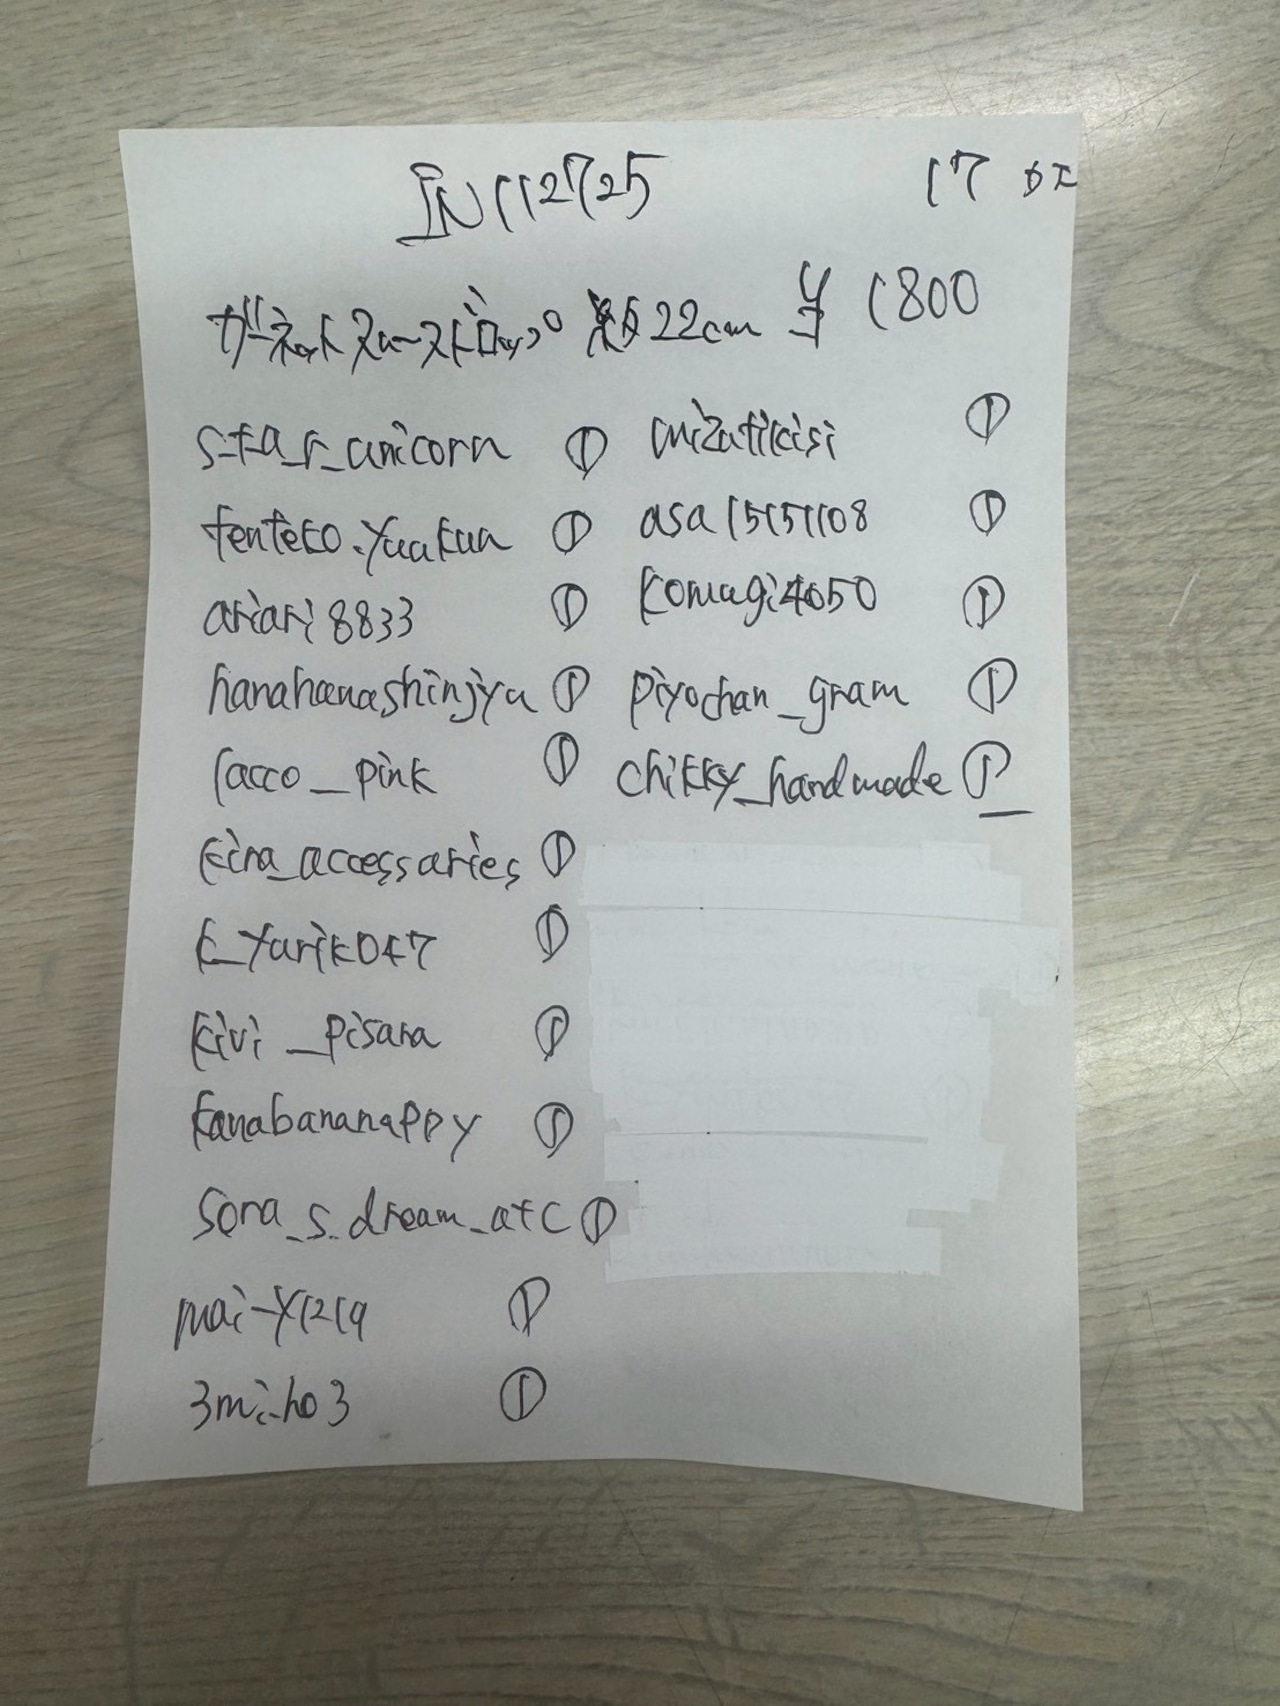 IN112725
17 点
ガーネットスムースドロップ 約22cm ¥ 1800
s-ta_r_unicorn ①
tenteko.yuukun ①
ariari8833 ①
hanahanashinjyu ①
racco_pink ①
kira_accessaries ①
k_yurik047 ①
kivi_pisara ①
kanabananappy ①
sora_s_dream_atc ①
mai-y1219 ①
3mi.ho3 ①
mizutikisi ①
asa15151108 ①
komugi4050 ①
piyochan_gram ①
chikky_handmade ①